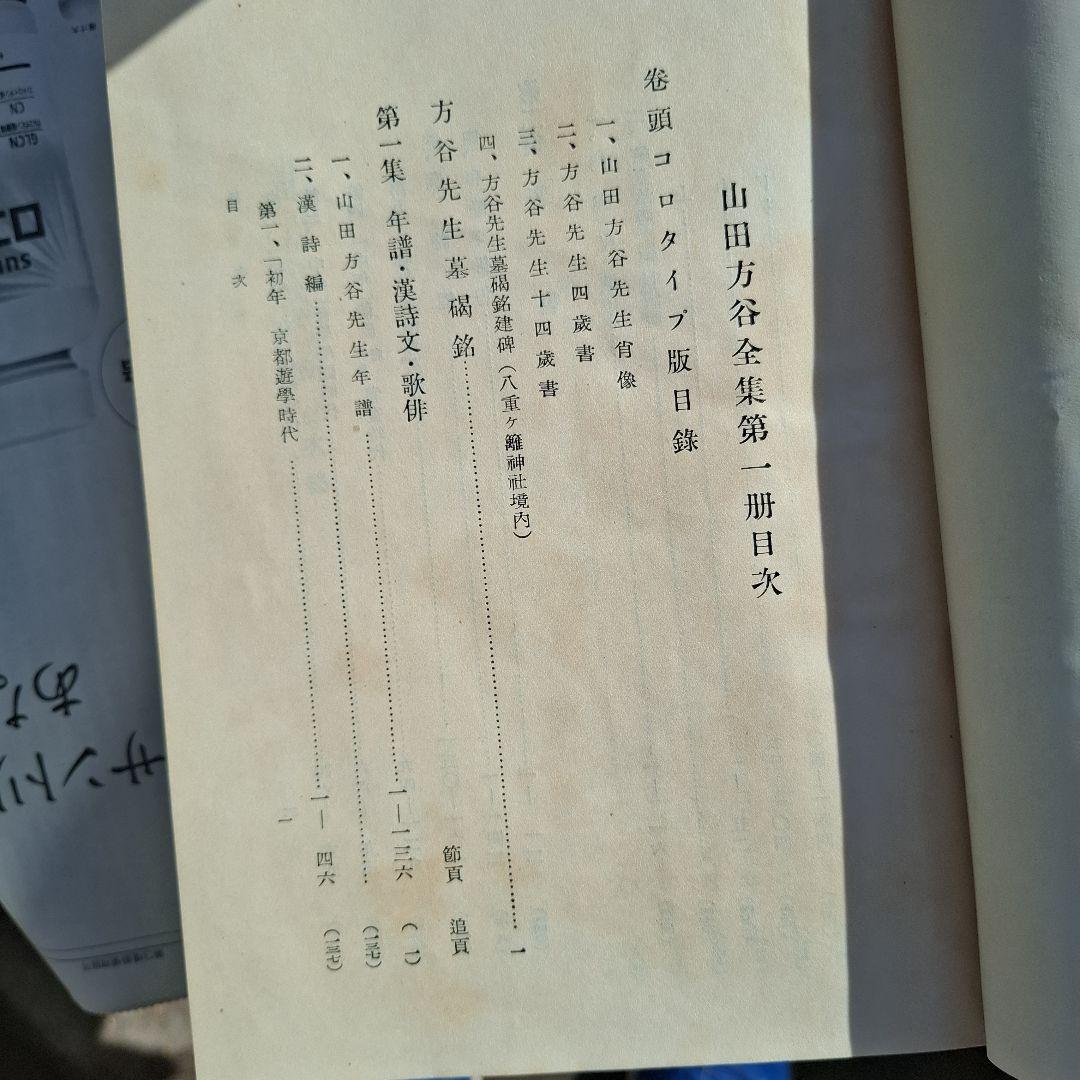 山田方谷全集第一册目次
卷頭コロタイプ版目錄
一、山田方谷先生肖像
二、方谷先生四歲書
三、方谷先生十四歲書
四、方谷先生墓碣銘建碑（八重ヶ籬神社境內）
方谷先生墓碣銘……一
節頁 追頁
第一集 年譜・漢詩文・歌俳
一、山田方谷先生年譜……一—一三六 （一）
二、漢詩編…… （一三七）
第一、「初年 京都遊學時代……一—四六 （一三七）
目次 一
サントリ
あな
GLCN
CN